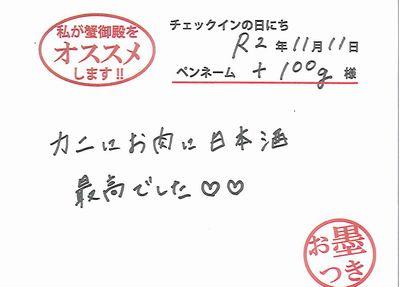 私が蟹御殿を
オススメ
します!!
チェックインの日にち
R2年11月11日
ペンネーム +100g 様
カニにお肉に日本酒
最高でした♡♡
お墨
つき